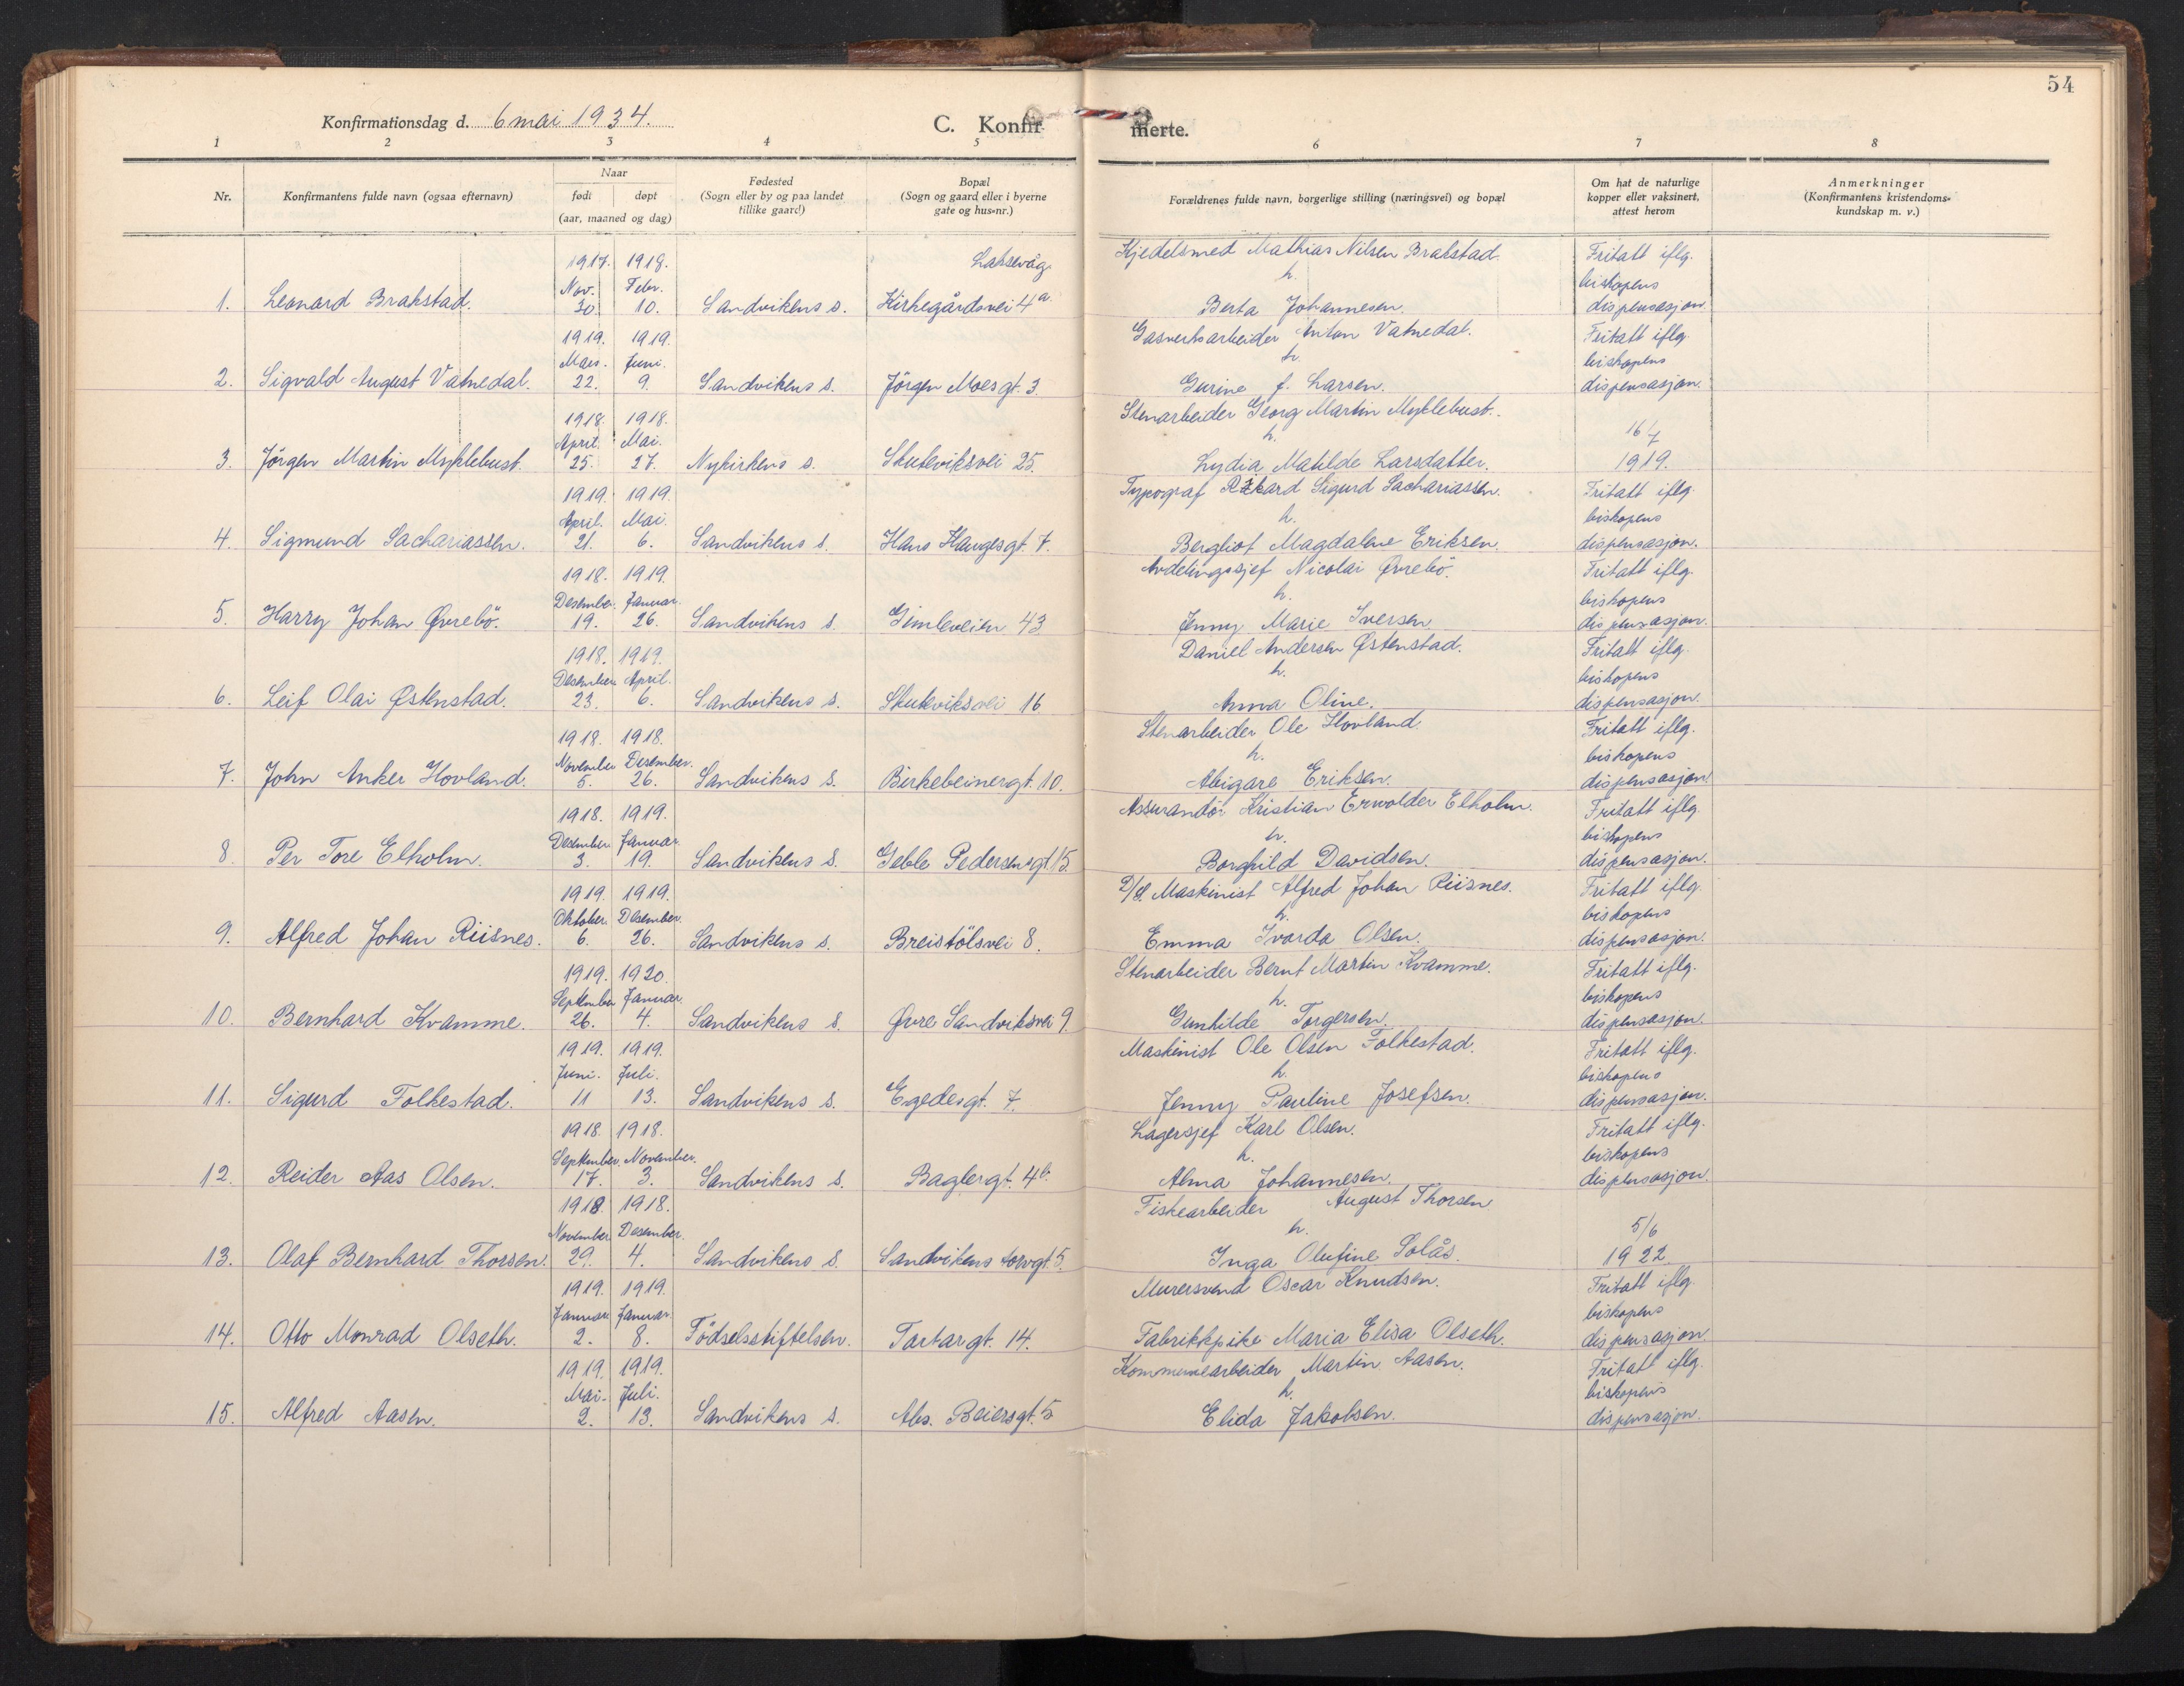 54
Konfirmationsdag d. 6 mai 1934.
C. Konfirmerte.
1 2 3 4 5 6 7 8
Nr.
Konfirmantens fulde navn (ogsaa efternavn)
Naar
født døpt
(aar, maaned og dag)
Fødested
(Sogn eller by og paa landet
tillike gaard)
Bopæl
(Sogn og gaard eller i byerne
gate og hus-nr.)
Forældrenes fulde navn, borgerlige stilling (næringsvei) og bopæl
Om hat de naturlige
kopper eller vaksinert,
attest herom
Anmerkninger
(Konfirmantens kristendoms-
kundskap m. v.)
1917. 1918. Laksevåg Kjedelsmed Mathias Nilsen Brakstad. Fritatt iflg.
Nov. Febr. h. biskopens
1. Leonard Brakstad. 30. 10. Sandvikens s. Kirkegårdsvei 4a. Berta Johannesen. dispensasjon.
1919. 1919. Gasverksarbeider Anton Vatnedal. Fritatt iflg.
Mars. Juni. h. biskopens
2. Sigvald August Vatnedal. 22. 9. Sandvikens s. Jörgen Moesgt. 3. Gurine f. Larsen. dispensasjon.
1918. 1918. Stenarbeider Georg Martin Myklebust.
April. Mai. h. 16/7
3. Jörgen Martin Myklebust. 25. 27. Nykirkens s. Skuteviksvei 25. Lydia Matilde Larsdatter. 1919.
1919. 1919. Typograf Rikard Sigurd Sachariassen. Fritatt iflg.
April. Mai. h. biskopens
4. Sigmund Sachariassen. 21. 6. Sandvikens s. Hans Haugesgt. 7. Bergliot Magdalene Eriksen. dispensasjon.
1918. 1919. Avdelingssjef Nicolai Øvrebö. Fritatt iflg.
Desember. Januar. h. biskopens
5. Harry Johan Øvrebö. 19. 26. Sandvikens s. Gimleveien 43 Jenny Marie Iversen dispensasjon.
1918. 1919. Daniel Andersen Østenstad. Fritatt iflg.
Desember April. h. biskopens
6. Leif Olai Østenstad. 23. 6. Sandvikens s. Skuteviksvei 16 Anna Oline. dispensasjon.
1918. 1918. Stenarbeider Ole Hovland. Fritatt iflg.
November Desember. h. biskopens
7. John Anker Hovland. 5. 26. Sandvikens s. Birkebeinergt. 10. Abigare Eriksen. dispensasjon
1918. 1919. Assurandör Kristian Erwolder Elholm. Fritatt iflg.
Desember Januar. h. biskopens
8. Per Tore Elholm. 3. 19. Sandvikens s. Geble Pedersensgt. 15. Borghild Davidsen. dispensasjon.
1919. 1919. D/S. Maskinist Alfred Johan Riisnes. Fritatt iflg.
Oktober. Desember. h. biskopens
9. Alfred Johan Riisnes. 6. 26. Sandvikens s. Breistölsvei 8. Emma Ivarda Olsen. dispensasjon.
1919. 1920. Stenarbeider Bernt Martin Kvamme. Fritatt iflg.
September Januar. h. biskopens
10. Bernhard Kvamme. 26. 4. Sandvikens s. Øvre Sandviksvei 9. Gunhilde Torgersen. dispensasjon.
1919. 1919. Maskinist Ole Olsen Folkestad. Fritatt iflg.
Juni. Juli. h. biskopens
11. Sigurd Folkestad. 11 13. Sandvikens s. Egedesgt. 7. Jenny Pauline Josefsen. dispensasjon.
1918. 1918. Lagersjef Karl Olsen. Fritatt iflg.
September. November. h. biskopens
12. Reider Aas Olsen. 17. 3. Sandvikens s. Baglergt. 4b. Alma Johannesen. dispensasjon.
1918 1918. Fiskearbeider August Thorsen
November Desember. h. 5/6
13. Olaf Bernhard Thorsen. 29. 4. Sandvikens s. Sandvikens torvgt. 5. Inga Olufine Solås. 1922
1919. 1919. Murersvend Oscar Knudsen. Fritatt iflg.
Januar. Januar biskopens
14. Otto Monrad Olseth. 2. 8. Födselsstiftelsen. Tartargt. 14. Fabrikkpike Maria Elisa Olseth. dispensasjon.
1919. 1919. Kommunearbeider Martin Aasen. Fritatt iflg.
Mai. Juli. h. biskopens
15. Alfred Aasen. 2. 13. Sandvikens s. Abs. Beiersgt. 5 Elida Jakobsen. dispensasjon.